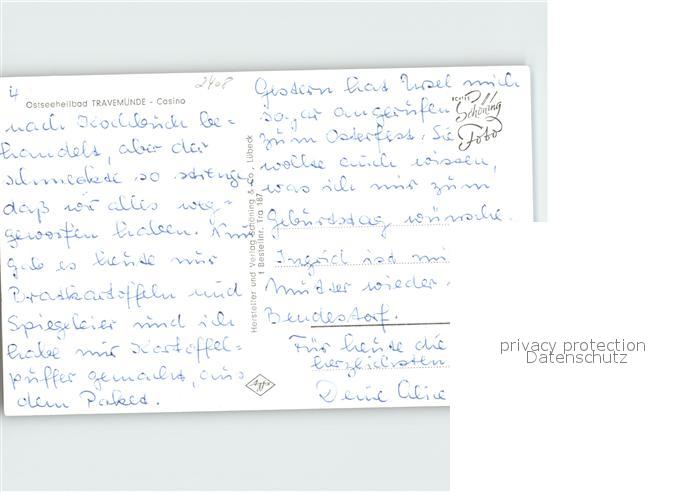 4
2408
Ostseeheilbad TRAVEMÜNDE - Casino
nach Kochbuch be=
handelt, aber der
schmeckte so strenge,
daß wir alles weg=
geworfen haben. Nun
gab es heute nur
Bratkartoffeln und
Spiegeleier und ich
habe mir Kartoffel=
puffer gemacht, aus
dem Paket.
Hersteller und Verlag Schöning & Co., Lübeck
† Bestellnr. Tra 187
Gestern hat Ursel mich
sogar angerufen
zum Osterfest. Sie
wollte auch wissen,
was ich mir zum
Geburtstag wünsche.
Ingrid ist mi
Mutter wieder
Bendestorf.
Für heute die
herzlichsten
Deine Alice
Schöning
Foto
Agfa
privacy protection
Datenschutz